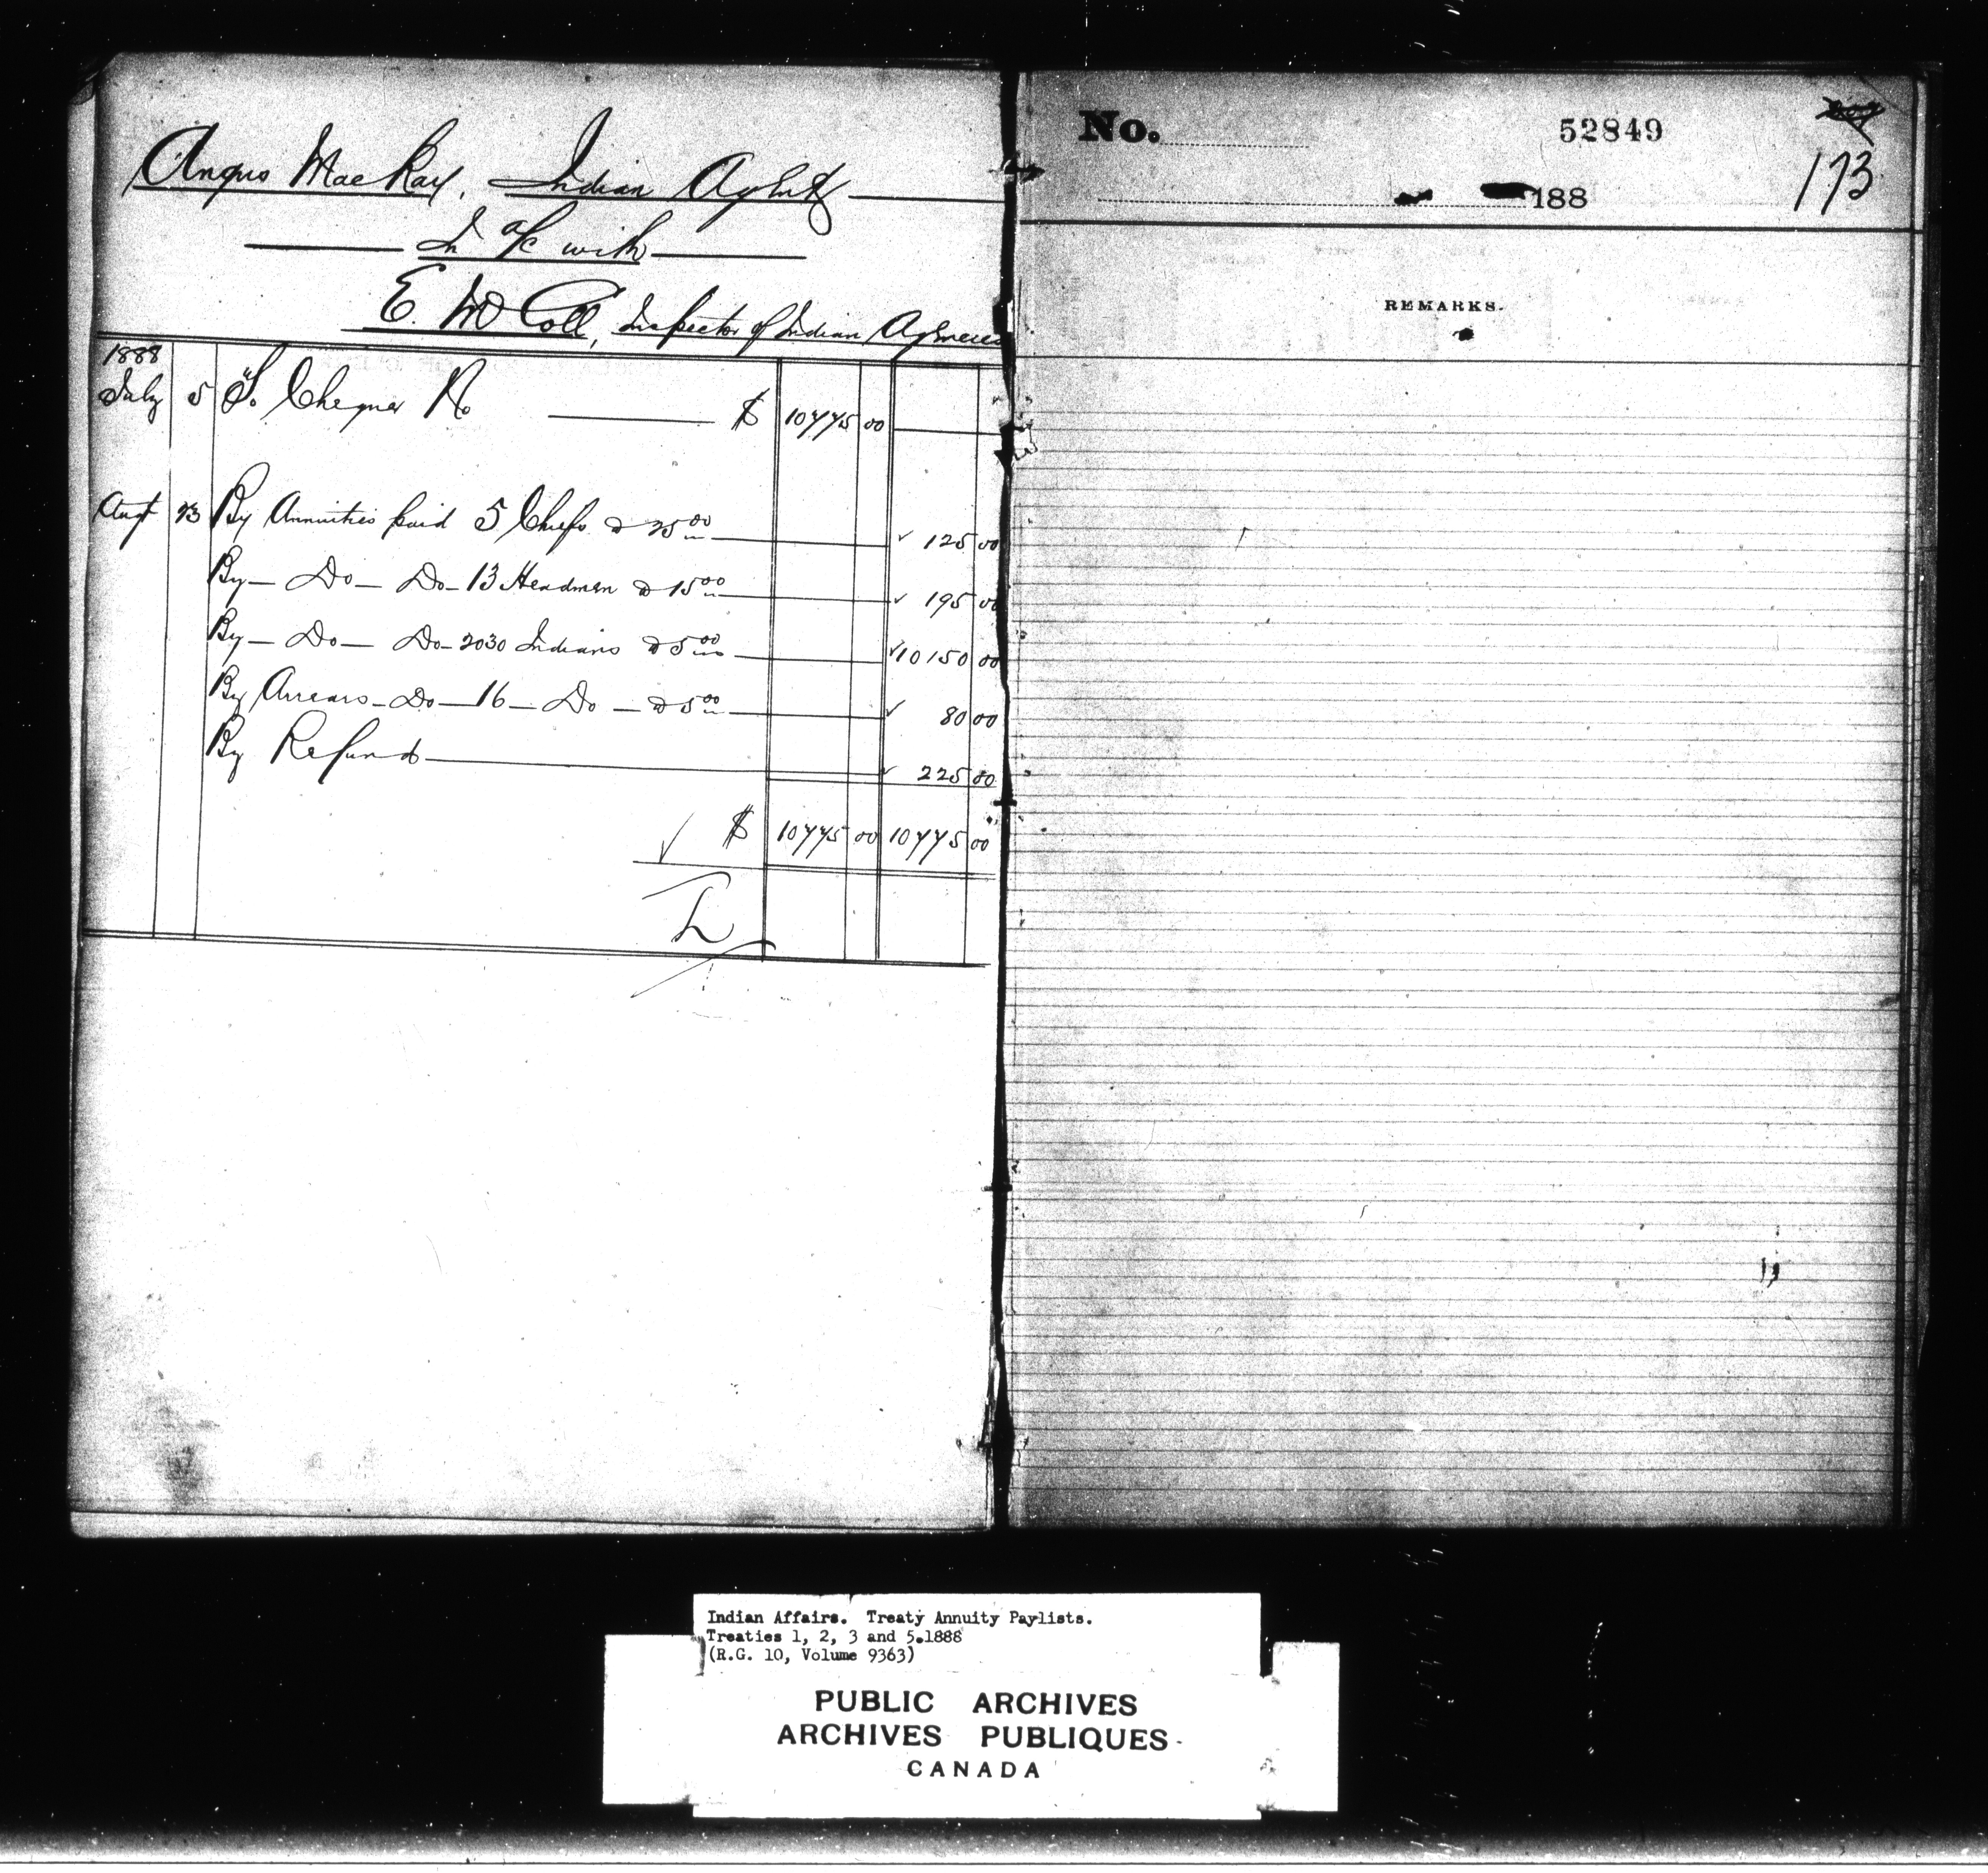 Angus MacKay, Indian Agent
In a/c with
E. McColl, Inspector of Indian Agencies
1888
July 5 To Cheques No $ 10775 00
Augt 23 By Annuities paid 5 Chiefs @ 25 00 125 00
By — Do — Do — 13 Headmen @ 15 00 195 00
By — Do — Do — 2030 Indians @ 5 00 10150 00
By Arrears — Do — 16 — Do — @ 5 00 80 00
By Refund 225 00
$ 10775 00 10775 00
No. 52849
173
188
REMARKS.
Indian Affairs. Treaty Annuity Paylists.
Treaties 1, 2, 3 and 5.1888
(R.G. 10, Volume 9363)
PUBLIC ARCHIVES
ARCHIVES PUBLIQUES
CANADA